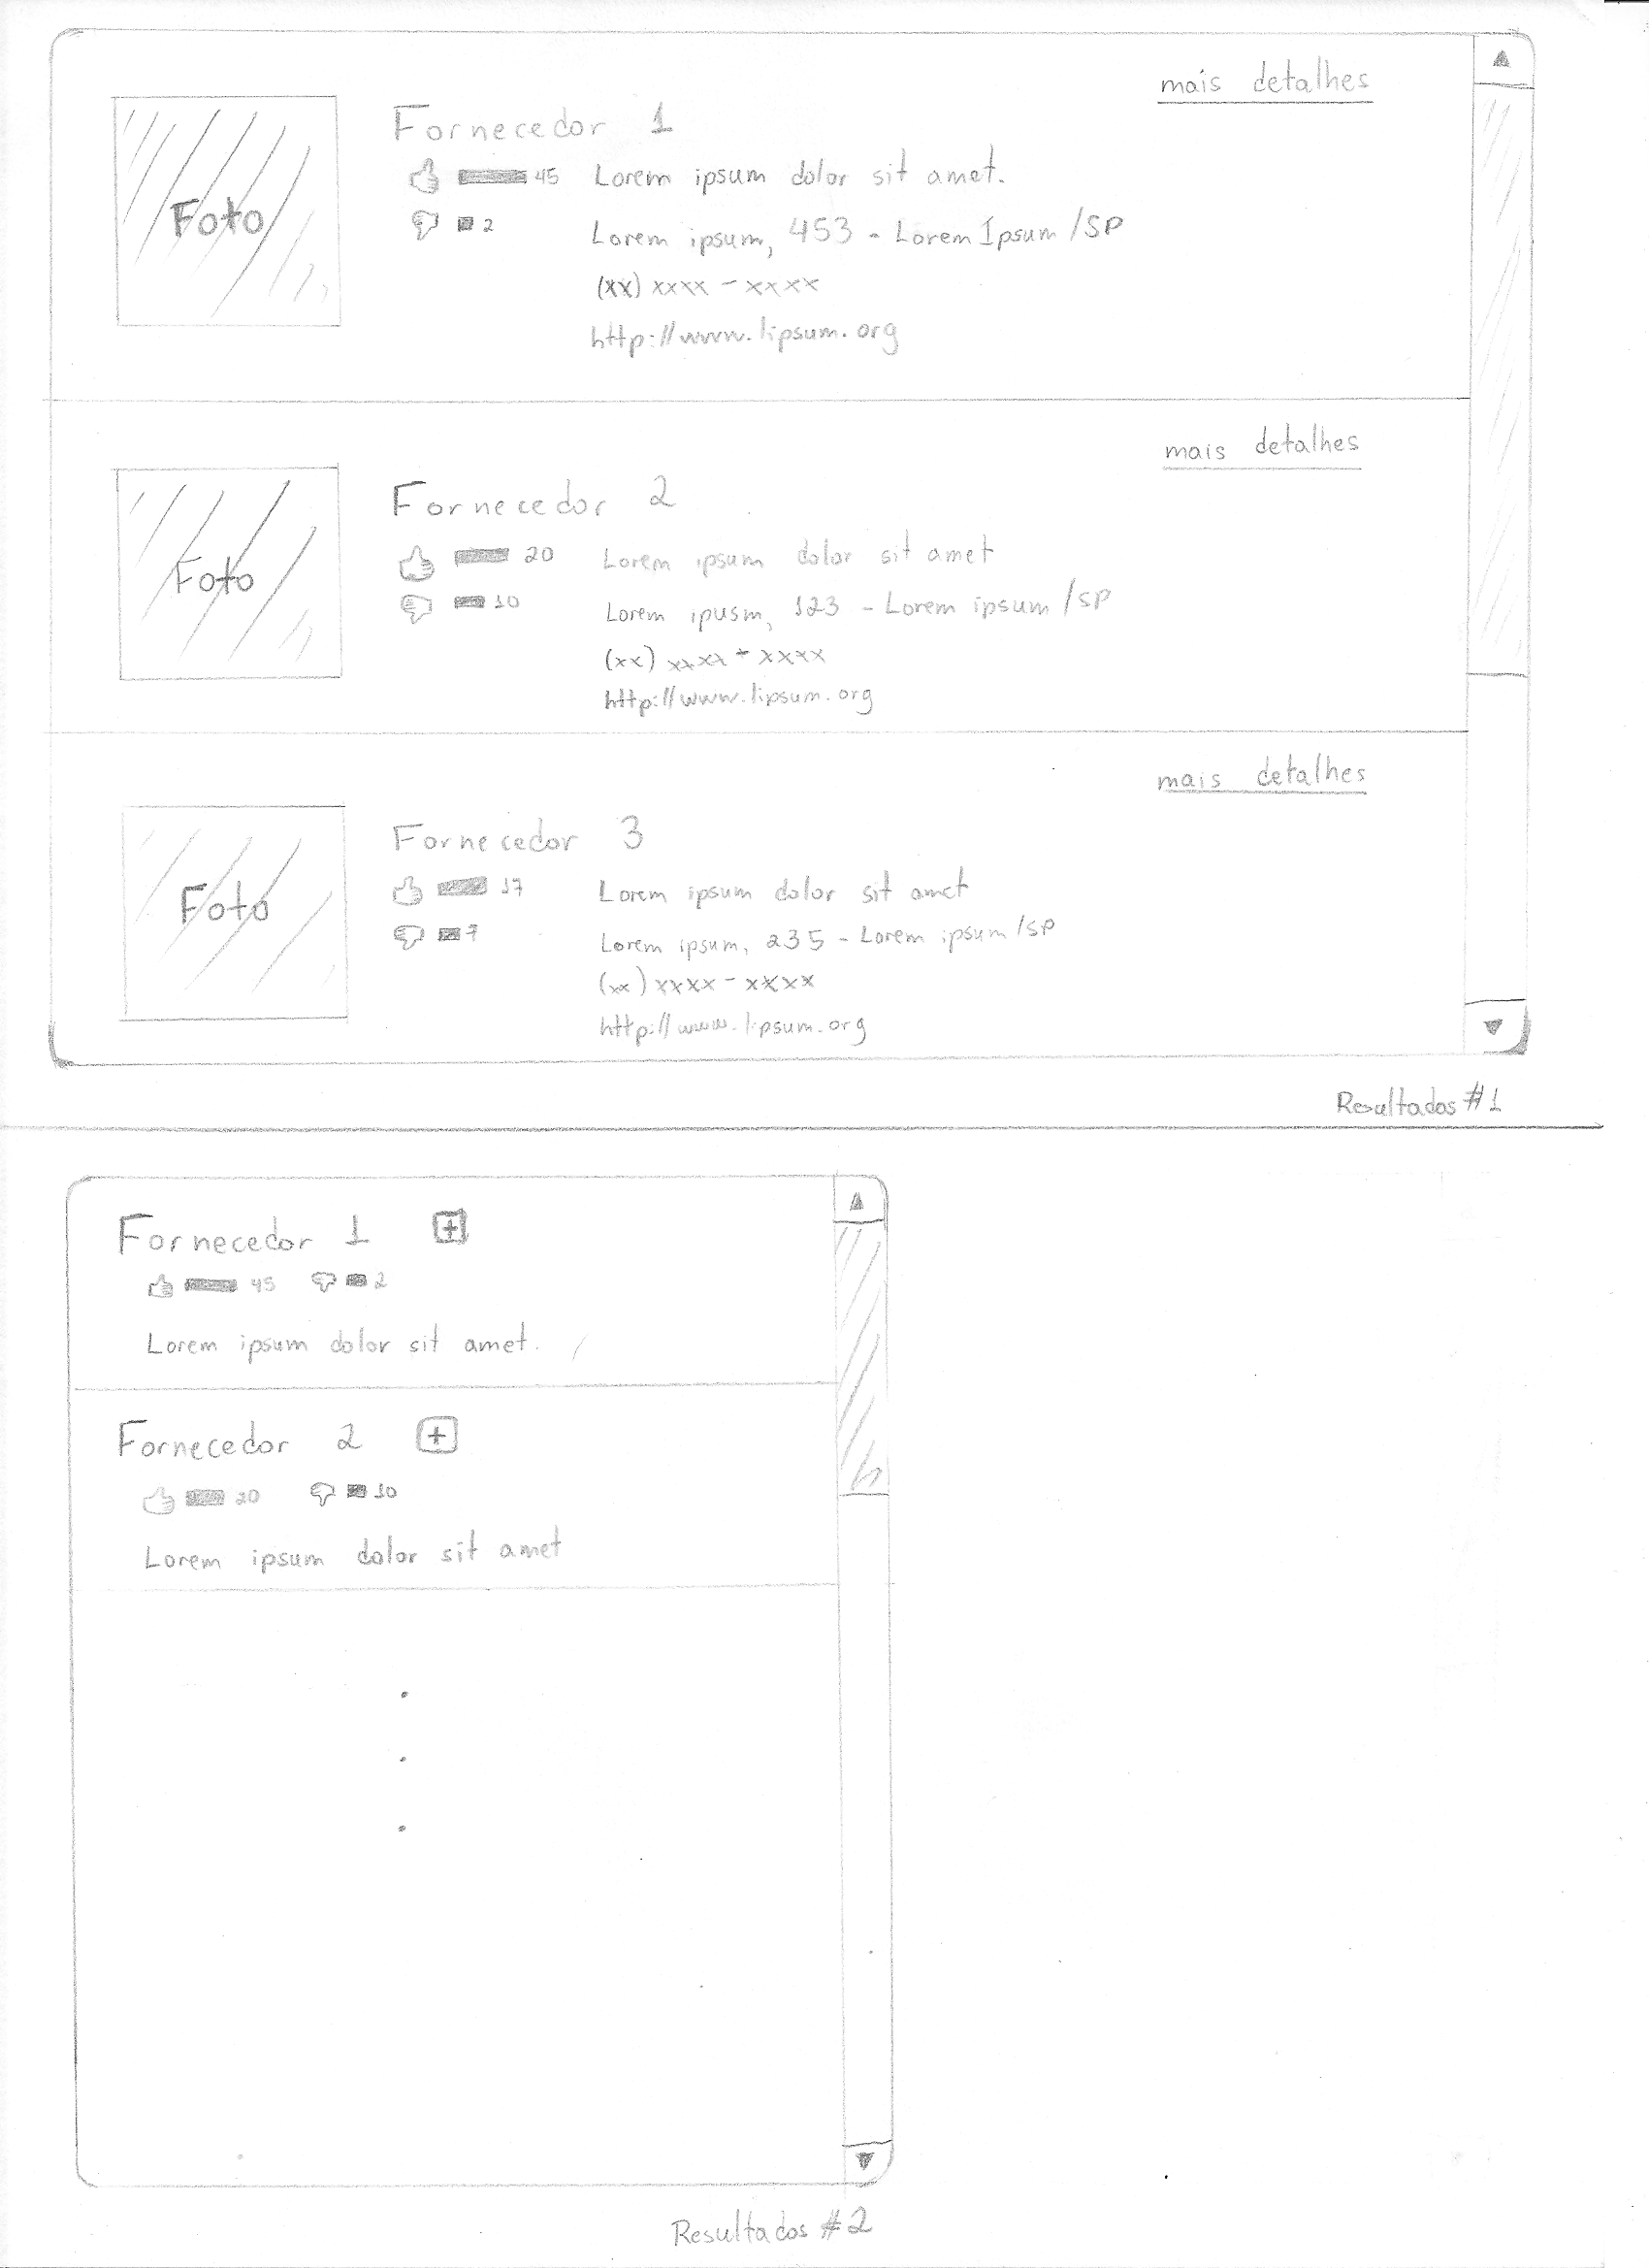 mais detalhes
Foto
Fornecedor 1
45 Lorem ipsum dolor sit amet.
2 Lorem ipsum, 453 - Lorem Ipsum /SP
(xx) xxxx - xxxx
http://www.lipsum.org
mais detalhes
Foto
Fornecedor 2
20 Lorem ipsum dolor sit amet
10 Lorem ipusm, 123 - Lorem ipsum /SP
(xx) xxxx - xxxx
http://www.lipsum.org
mais detalhes
Foto
Fornecedor 3
17 Lorem ipsum dolor sit amet
7 Lorem ipsum, 235 - Lorem ipsum /SP
(xx) xxxx - xxxx
http://www.lipsum.org
Resultados #1
Fornecedor 1 +
45 2
Lorem ipsum dolor sit amet.
Fornecedor 2 +
20 10
Lorem ipsum dolor sit amet
Resultados #2